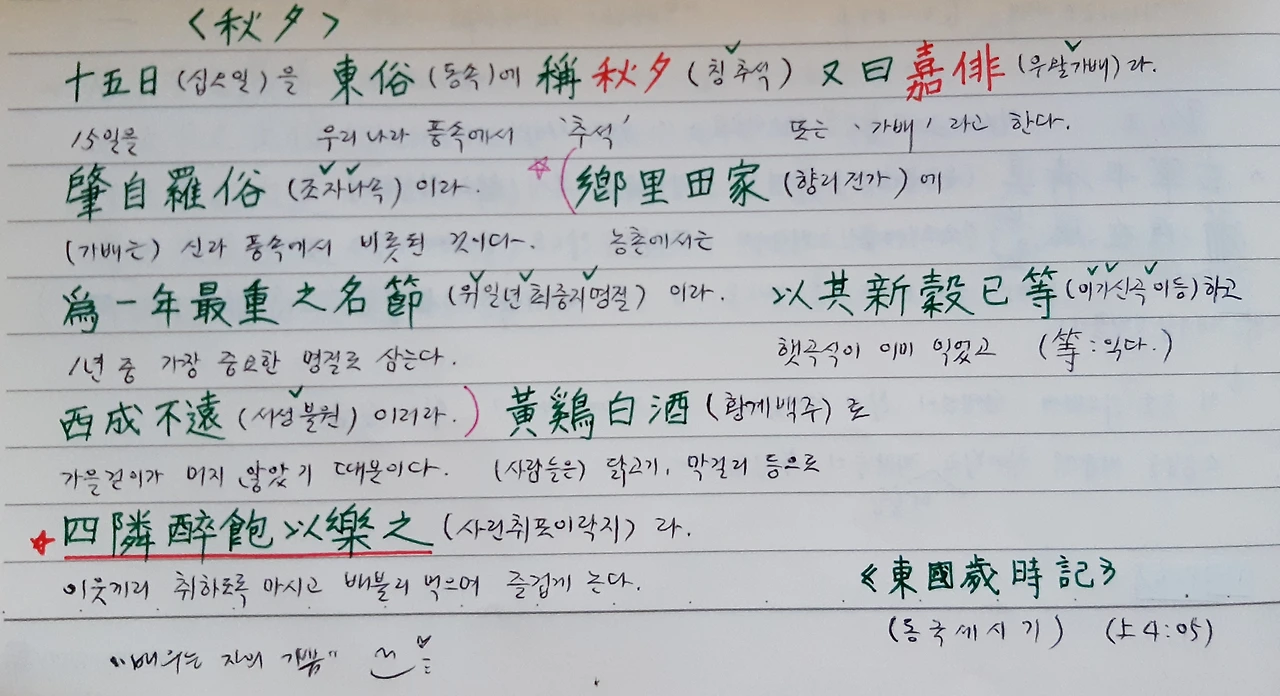 <秋夕>
十五日 (십오일)을 東俗 (동속)에 稱 秋夕 (칭추석) 又曰 嘉俳 (우왈가배)라.
15일을 우리나라 풍속에서 '추석' 또는 '가배'라고 한다.
肇自羅俗 (조자나속)이라. ☆(鄕里田家 (향리전가)에
(가배는) 신라 풍속에서 비롯된 것이다. 농촌에서는
爲一年最重之名節 (위일년최중지명절)이라. 以其新穀已等 (이기신곡이등)하고
1년 중 가장 중요한 명절로 삼는다. 햇곡식이 이미 익었고 (等:익다.)
西成不遠 (서성불원)이리라.) 黃鷄白酒 (황계백주)로
가을걷이가 머지 않았기 때문이다. (사람들은) 닭고기, 막걸리 등으로
☆四隣醉飽以樂之 (사린취포이락지)라.
이웃끼리 취하도록 마시고 배불리 먹으며 즐겁게 논다. 《東國歲時記》
(동국세시기) (上4:05)
"배우는 자의 기쁨"